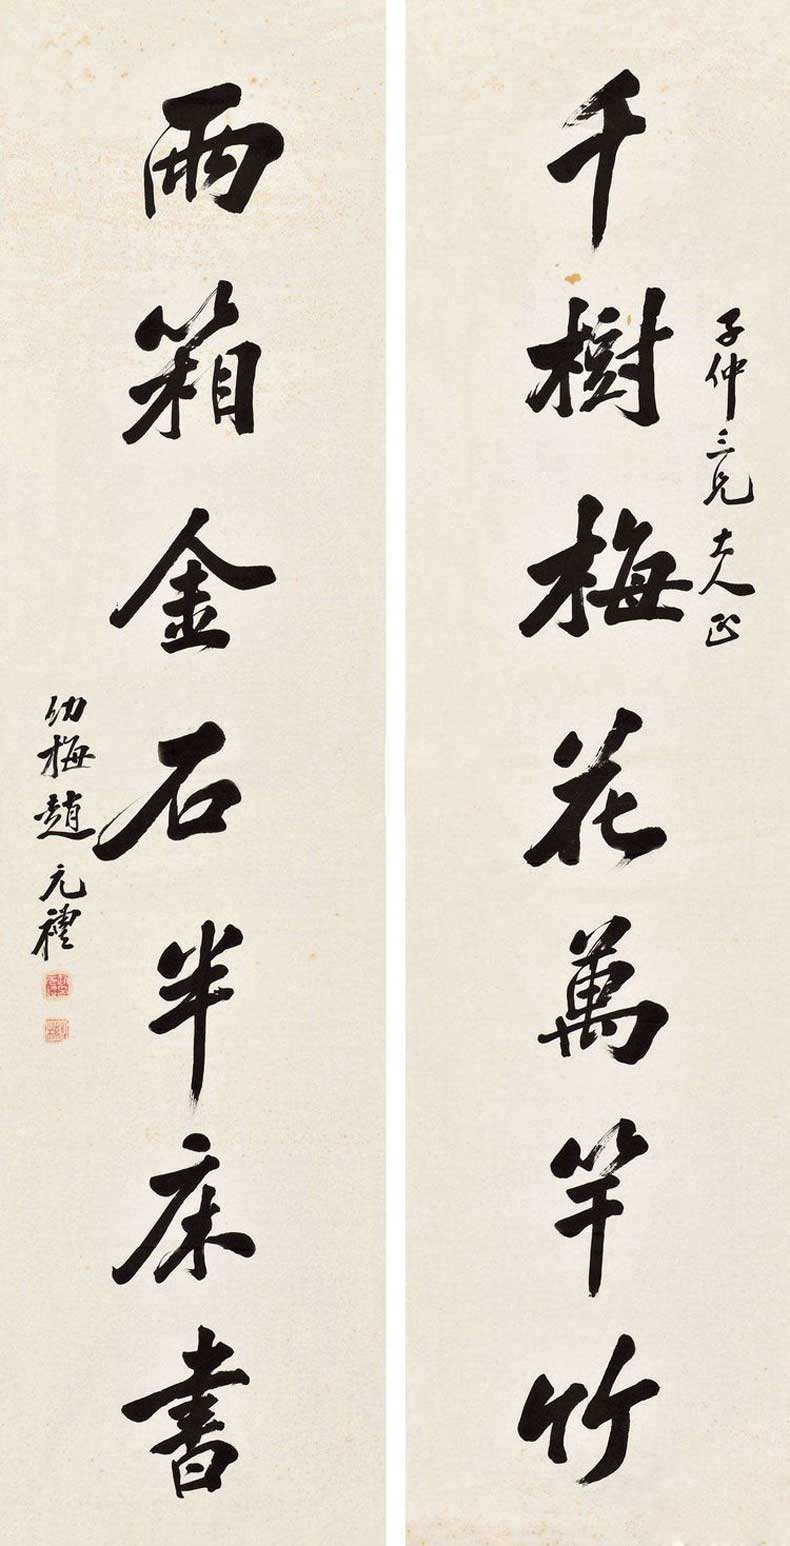 子仲三兄大人正
千樹梅花萬竿竹
兩箱金石半床書
幼梅趙元禮